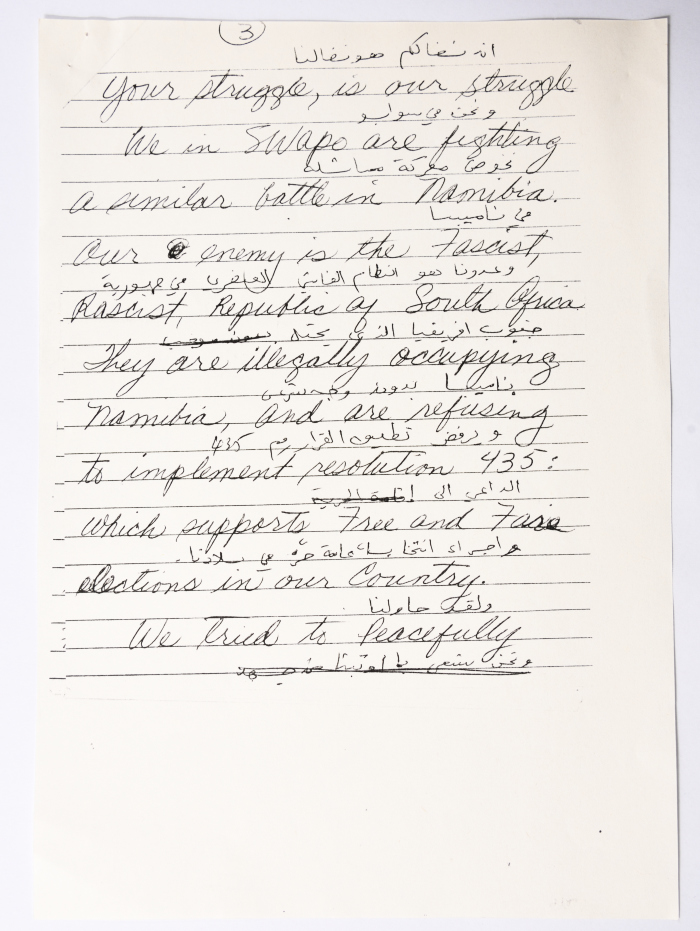 3
ان نضالكم هو نضالنا
Your struggle, is our struggle
ونحن في سوابو
We in SWAPO are fighting
نخوض معركة مماثلة
a similar battle in Namibia.
في ناميبيا
Our enemy is the Fascist,
وعدونا هو النظام الفاشي العنصري في جمهورية
Rascist, Republic of South Africa
جنوب افريقيا الذي يحتل
They are illegally occupying
ناميبيا بدون وجه شرعي
Namibia, and are refusing
ويرفض تطبيق القرار رقم ٤٣٥
to implement resolution 435:
الداعي الى
which supports Free and Fare
واجراء انتخابات عامة حرة في بلادنا.
elections in our Country.
ولقد حاولنا
We tried to Peacefully
ونحن نسعى